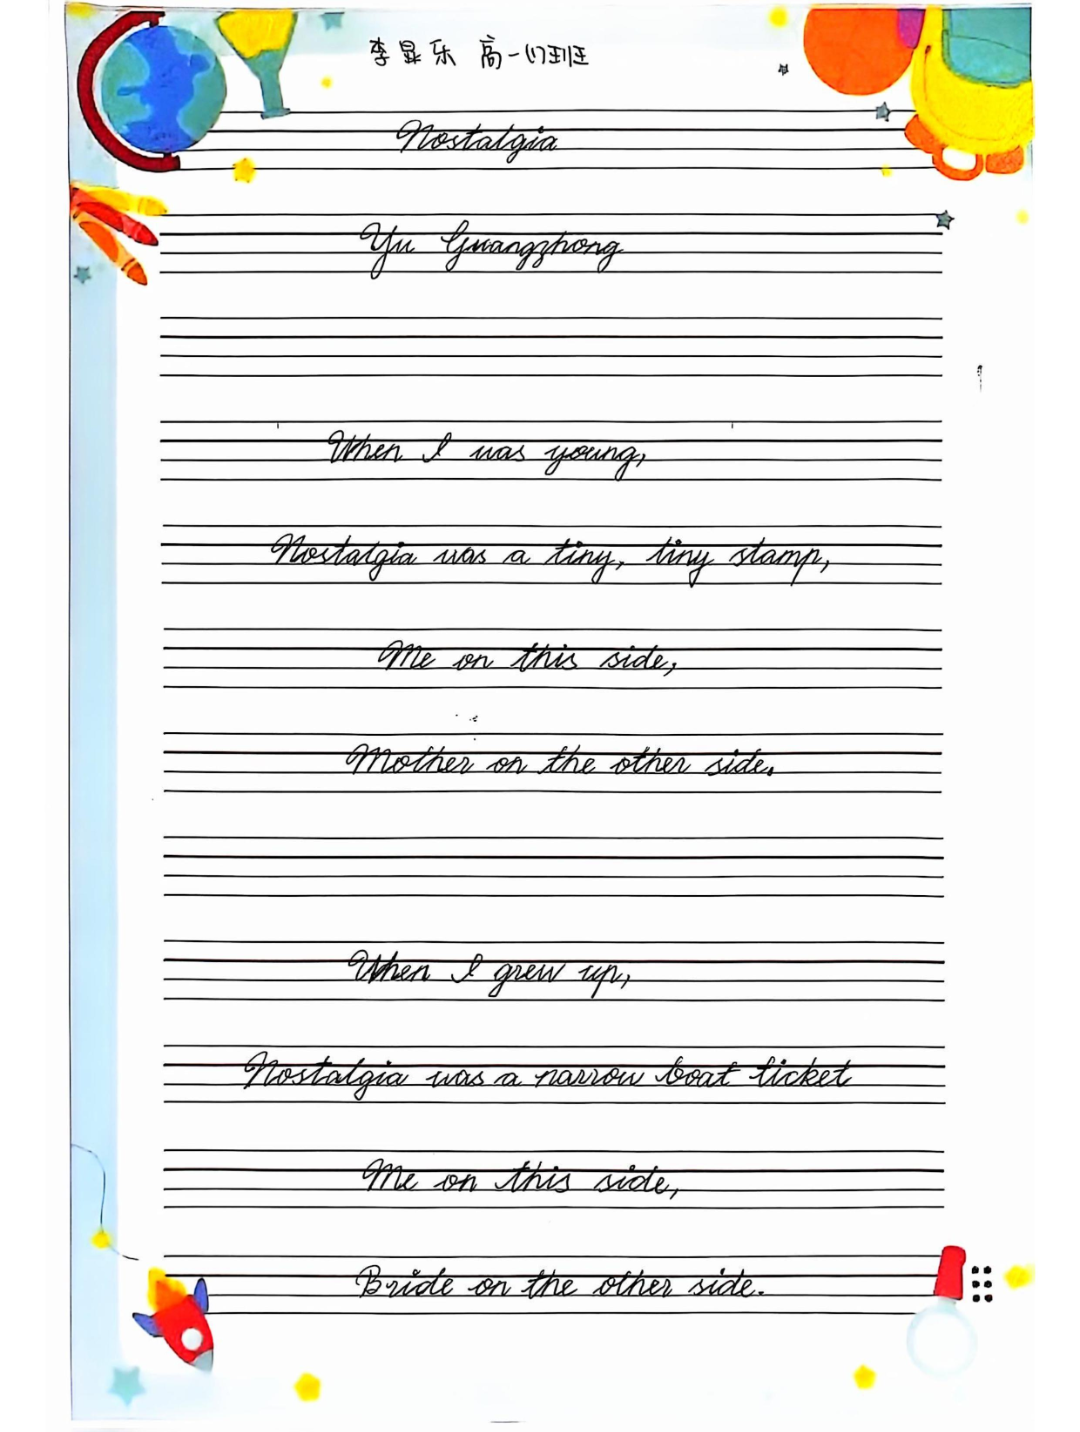 李显乐 高一(1)班
Nostalgia
Yu Guangzhong
When I was young,
Nostalgia was a tiny, tiny stamp,
Me on this side,
Mother on the other side.
When I grew up,
Nostalgia was a narrow boat ticket
Me on this side,
Bride on the other side.